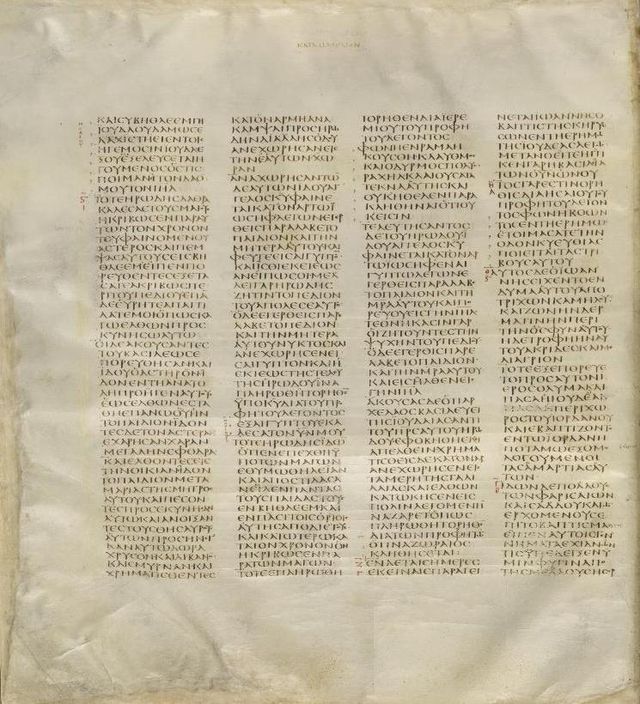 ΚΑΙΣΥΒΗΘΛΕΕΜΓΗ
ΙΟΥΔΑΟΥΔΑΜΩΣΕ
ΗΓΕΜΟΣΙΝΙΟΥΔΑ
ΓΟΥΜΕΝΟΣΟΣΤΙΣ
ΠΟΙΜΑΝΙΤΟΝΛΑΟ
ΜΟΥΤΟΝΙΗΛ
ΤΟΤΕΗΡΩΔΗΣΛΑΘΡΑ
ΚΑΛΕΣΑΣΤΟΥΣΜΑ
ΗΚΡΙΒΩΣΕΝΠΑΡΑΥ
ΤΩΝΤΟΝΧΡΟΝΟΝ
ΤΟΥΦΑΙΝΟΜΕΝΟΥ
ΑΣΤΕΡΟΣΚΑΙΠΕΜ
ΨΑΣΑΥΤΟΥΣΕΙΣΒΗ
ΘΛΕΕΜΕΙΠΕΝΠΟ
ΡΕΥΘΕΝΤΕΣΕΞΕΤΑ
ΣΑΤΕΑΚΡΙΒΩΣΠΕ
ΡΙΤΟΥΠΑΙΔΙΟΥΕΠΑ
ΔΕΥΡΗΤΕΑΠΑΓΓΙ
ΛΑΤΕΜΟΙΟΠΩΣΚΑ
ΓΩΕΛΘΩΝΠΡΟΣ
ΚΥΝΗΣΩΑΥΤΩ
ΟΙΔΕΑΚΟΥΣΑΝΤΕΣ
ΤΟΥΒΑΣΙΛΕΩΣΕ
ΠΟΡΕΥΘΗΣΑΝΚΑΙ
ΙΔΟΥΟΑΣΤΗΡΟΝΕΙ
ΔΟΝΕΝΤΗΑΝΑΤΟ
ΛΗΠΡΟΗΓΕΝΑΥΤΟΥΣ
ΕΩΣΕΛΘΩΝΕΣΤΑ
ΘΗΕΠΑΝΩΟΥΗΝ
ΤΟΠΑΙΔΙΟΝΙΔΟΝ
ΤΕΣΔΕΤΟΝΑΣΤΕΡΑ
ΕΧΑΡΗΣΑΝΧΑΡΑΝ
ΜΕΓΑΛΗΝΣΦΟΔΡΑ
ΚΑΙΕΛΘΟΝΤΕΣΕΙΣ
ΤΗΝΟΙΚΙΑΝΙΔΟΝ
ΤΟΠΑΙΔΙΟΝΜΕΤΑ
ΜΑΡΙΑΣΤΗΣΜΗΤΡΟΣ
ΑΥΤΟΥΚΑΙΠΕΣΟΝ
ΤΕΣΠΡΟΣΕΚΥΝΗΣΑ
ΑΥΤΩΚΑΙΑΝΟΙΞΑΝ
ΤΕΣΤΟΥΣΘΗΣΑΥΡΟΥΣ
ΧΡΥΣΟΝΚΑΙΛΙΒΑΝΟ
ΚΑΙΣΜΥΡΝΑΝΚΑΙ
ΧΡΗΜΑΤΙΣΘΕΝΤΕΣ
ΚΑΤΟΝΑΡΜΗΑΝΑ
ΚΑΜΨΑΙΠΡΟΣΗΡΩ
ΔΗΝΑΛΛΑΔΙΑΛΛΗΣΟΔΟΥ
ΑΝΕΧΩΡΗΣΑΝΕΙΣ
ΤΗΝΕΑΥΤΩΝΧΩ
ΡΑΝ
ΑΝΑΧΩΡΗΣΑΝΤΩ
ΔΕΑΥΤΩΝΙΔΟΥΑΓ
ΓΕΛΟΣΚΥΦΑΙΝΕ
ΤΑΙΚΑΤΟΝΑΡΤΩΪ
ΩΣΗΦΛΕΓΩΝΕΓΕΡ
ΘΕΙΣΠΑΡΑΛΑΒΕΤΟ
ΠΑΙΔΙΟΝΚΑΙΤΗΝ
ΜΗΤΕΡΑΑΥΤΟΥΚΑΙ
ΦΕΥΓΕΕΙΣΑΙΓΥΠΤΟ
ΚΑΙΙΣΘΙΕΚΕΙΕΩΣ
ΑΝΕΙΠΩΣΟΙΜΕΛ
ΛΕΙΓΑΡΗΡΩΔΗΣ
ΖΗΤΙΝΤΟΠΑΙΔΙΟΝ
ΤΟΥΑΠΟΛΕΣΕΑΥΤΟ
ΟΔΕΕΓΕΡΘΕΙΣΠΑΡΕ
ΛΑΒΕΤΟΠΑΙΔΙΟΝ
ΚΑΙΤΗΝΜΗΤΕΡΑ
ΑΥΤΟΥΝΥΚΤΟΣΚΑΙ
ΑΝΕΧΩΡΗΣΕΝΕΙΣ
ΑΙΓΥΠΤΟΝΚΑΙΗ
ΕΚΙΕΩΣΤΗΣΤΕΛΕΥ
ΤΗΣΗΡΩΔΟΥΙΝΑ
ΠΛΗΡΩΘΗΤΟΡΗΘΕ
ΥΠΟΚΥΔΙΑΤΟΥΠΡΟ
ΦΗΤΟΥΛΕΓΟΝΤΟΣ
ΕΞΑΙΓΥΠΤΟΥΕΚΑ
ΛΕΣΑΤΟΝΥΝΜΟΥ
ΤΟΤΕΗΡΩΔΗΣΙΔΩ
ΟΤΙΕΝΕΠΕΧΘΗΫ
ΠΟΤΩΝΜΑΓΩΝ
ΕΘΥΜΩΘΗΛΕΙΑΝ
ΚΑΙΑΠΟΣΤΙΛΑΣΑ
ΝΕΙΛΕΝΠΑΝΤΑΣ
ΤΟΥΣΠΑΙΔΑΣΤΟΥΣ
ΕΝΒΗΘΛΕΕΜΚΑΙ
ΕΝΠΑΣΙΤΟΙΣΟΡΙΟΙΣ
ΑΥΤΗΣΑΠΟΔΙΕΤΟΥΣ
ΚΑΙΚΑΤΩΤΕΡΩΚΑ
ΤΑΤΟΝΧΡΟΝΟΝΟΝ
ΗΚΡΙΒΩΣΕΝΠΑ
ΡΑΤΩΝΜΑΓΩΝ
ΤΟΤΕΕΠΛΗΡΩΘΗ
ΤΟΡΗΘΕΝΔΙΑΪΕΡΕ
ΜΙΟΥΤΟΥΠΡΟΦΗ
ΤΟΥΛΕΓΟΝΤΟΣ
ΦΩΝΗΕΝΡΑΜΑ
ΗΚΟΥΣΘΗΚΛΑΥΘΜΟΣ
ΚΑΙΟΔΥΡΜΟΣΠΟΛΥΣ
ΡΑΧΗΛΚΛΑΙΟΥΣΑΤΑ
ΤΕΚΝΑΑΥΤΗΣΚΑΙ
ΟΥΚΗΘΕΛΕΝΠΑΡΑ
ΚΛΗΘΗΝΑΙΟΤΙΟΥ
ΚΕΙΣΙΝ
ΤΕΛΕΥΤΗΣΑΝΤΟΣ
ΔΕΤΟΥΗΡΩΔΟΥΙ
ΔΟΥΑΓΓΕΛΟΣΚΥ
ΦΑΙΝΕΤΑΙΚΑΤΟΝΑΡ
ΤΩΪΩΣΗΦΕΝΑΙ
ΓΥΠΤΩΛΕΓΩΝΕ
ΓΕΡΘΕΙΣΠΑΡΑΛΑΒΕ
ΤΟΠΑΙΔΙΟΝΚΑΙΤΗ
ΜΡΑΑΥΤΟΥΚΑΙΠΟ
ΡΕΥΟΥΕΙΣΓΗΝΙΗΛ
ΤΕΘΝΗΚΑΣΙΝΓΑΡ
ΟΙΖΗΤΟΥΝΤΕΣΤΗΝ
ΨΥΧΗΝΤΟΥΠΑΙΔΙΟΥ
ΟΔΕΕΓΕΡΘΕΙΣΠΑΡΕ
ΛΑΒΕΤΟΠΑΙΔΙΟΝ
ΚΑΙΤΗΝΜΡΑΑΥΤΟΥ
ΚΑΙΕΙΣΗΛΘΕΝΕΙΣ
ΓΗΝΙΗΛ
ΑΚΟΥΣΑΣΔΕΟΤΙΑΡ
ΧΕΛΑΟΣΒΑΣΙΛΕΥΕΙ
ΤΗΣΙΟΥΔΑΙΑΣΑΝΤΙ
ΤΟΥΠΡΣΑΥΤΟΥΗΡΩ
ΔΟΥΕΦΟΒΗΘΗΕΚΕΙ
ΑΠΕΛΘΕΙΝΧΡΗΜΑ
ΤΙΣΘΕΙΣΔΕΚΑΤΟΝΑΡ
ΑΝΕΧΩΡΗΣΕΝΕΙΣ
ΤΑΜΕΡΗΤΗΣΓΑΛΙ
ΛΑΙΑΣΚΑΙΕΛΘΩΝ
ΚΑΤΩΚΗΣΕΝΕΙΣ
ΠΟΛΙΝΛΕΓΟΜΕΝΗ
ΝΑΖΑΡΕΤΟΠΩΣ
ΠΛΗΡΩΘΗΤΟΡΗΘΕ
ΔΙΑΤΩΝΠΡΟΦΗΤΩ
ΟΤΙΝΑΖΩΡΑΙΟΣ
ΚΛΗΘΗΣΕΤΑΙ
ΕΝΔΕΤΑΙΣΗΜΕΡΕΣ
ΕΚΕΙΝΑΙΣΠΑΡΑΓΕΙ
ΝΕΤΑΙΙΩΑΝΝΗΣΟ
ΒΑΠΤΙΣΤΗΣΚΗΡΥΣ
ΣΩΝΕΝΤΗΕΡΗΜΩ
ΤΗΣΙΟΥΔΑΙΑΣΛΕΓΩ
ΜΕΤΑΝΟΕΙΤΕΗΓΓΙ
ΚΕΝΓΑΡΗΒΑΣΙΛΙΑ
ΤΩΝΟΥΝΩΝΟΥ
ΤΟΣΓΑΡΕΣΤΙΝΟΡΗ
ΘΙΣΔΙΑΗΣΑΙΟΥΤΟΥ
ΠΡΟΦΗΤΟΥΛΕΓΟΝ
ΤΟΣΦΩΝΗΒΟΩΝ
ΤΟΣΕΝΤΗΕΡΗΜΩ
ΕΤΟΙΜΑΣΑΤΕΤΗΝ
ΟΔΟΝΚΥΕΥΘΙΑΣ
ΠΟΙΕΙΤΕΤΑΣΤΡΙ
ΒΟΥΣΑΥΤΟΥ
ΑΥΤΟΣΔΕΟΪΩΑΝ
ΝΗΣΕΙΧΕΝΤΟΕΝ
ΔΥΜΑΑΥΤΟΥΑΠΟ
ΤΡΙΧΩΝΚΑΜΗΛΟΥ
ΚΑΙΖΩΝΗΝΔΕΡ
ΜΑΤΙΝΗΝΠΕΡΙ
ΤΗΝΟΣΦΥΝΑΥΤΟΥ
ΗΔΕΤΡΟΦΗΗΝΑΥ
ΤΟΥΑΚΡΙΔΕΣΚΑΙΜΕ
ΛΙΑΓΡΙΟΝ
ΤΟΤΕΕΞΕΠΟΡΕΥΕ
ΤΟΠΡΟΣΑΥΤΟΝΙ
ΕΡΟΣΟΛΥΜΑΚΑΙ
ΠΑΣΑΗΙΟΥΔΑΙΑ
ΡΟΣΤΟΥΙΟΡΔΑΝΟΥ
ΚΑΙΕΒΑΠΤΙΖΟΝΤΟ
ΕΝΤΩΙΟΡΔΑΝΗ
ΠΟΤΑΜΩΕΞΟΜΟ
ΛΟΓΟΥΜΕΝΟΙ
ΤΑΣΑΜΑΡΤΙΑΣΑΥ
ΤΩΝ
ΙΔΩΝΔΕΠΟΛΛΟΥΣ
ΤΩΝΦΑΡΙΣΑΙΩΝ
ΚΑΙΣΑΔΔΟΥΚΑΙΩ
ΕΡΧΟΜΕΝΟΥΣΕ
ΠΙΤΟΒΑΠΤΙΣΜΑ
ΕΙΠΕΝΑΥΤΟΙΣΓΕΝ
ΝΗΜΑΤΑΕΧΙΔΝΩ
ΤΙΣΥΠΕΔΕΙΞΕΝΥ
ΜΙΝΦΥΓΙΝΑΠΟ
ΤΗΣΜΕΛΛΟΥΣΗΣΟΡ